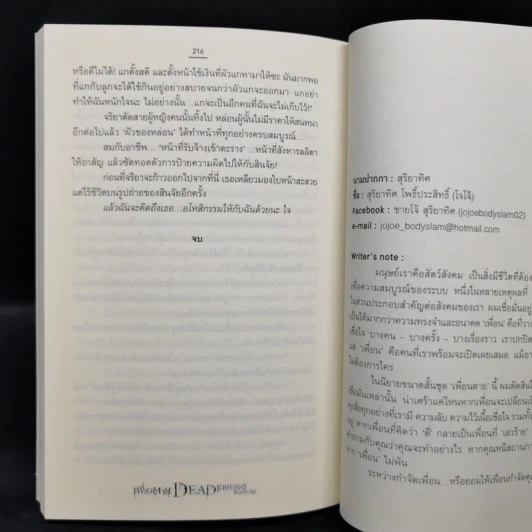 216
หรือดีไม่ได้! แกตั้งสติ และตั้งหน้าใช้เงินที่ผัวแกหามาให้ซะ มันมากพอ
ที่แกกับลูกจะได้ใช้กินอยู่อย่างสบายจนกว่าผัวแกจะออกมา แกอย่า
ทำให้ฉันหนักใจนะ ไม่อย่างนั้น...แกจะเป็นอีกคนที่ฉันจะไม่เก็บไว้!"
จริยาตัดสายผู้หญิงคนนั้นทิ้งไป หล่อนผู้นั้นไม่มีราคาให้สนทนา
อีกต่อไปแล้ว 'ผัวของหล่อน' ได้ทำหน้าที่ทุกอย่างครบสมบูรณ์...
สมกับอาชีพ... 'หน้าที่รับจ้างเข้าตะราง' ...หน้าที่สังหารลลิตา
ให้อาสัญ แล้วซัดทอดตัวการป้ายความผิดไปให้กับสินจัย!
ก่อนที่จริยาจะก้าวออกไปจากที่นี่ เธอเหลียวมองใบหน้าสะสวย
แต่ไร้ชีวิตบนรูปถ่ายของสินจัยอีกครั้ง
แล้วฉันจะคิดถึงเธอ...อโหสิกรรมให้กับฉันด้วยนะ ใจ
จบ
เพื่อนตาย DEAD FRIENDS FOREVER
นามปากกา : สุริยาทิศ
ชื่อ : สุริยาทิศ โพธิ์ประสิทธิ์ (โจโจ้)
Facebook : ชายโจ้ สุริยาทิศ (jojoebodyslam02)
e-mail : jojoe_bodyslam@hotmail.com
Writer's note :
มนุษย์เราคือสัตว์สังคม เป็นสิ่งมีชีวิตที่ต้อง
เพื่อความสมบูรณ์ของระบบ หนึ่งในหลายเหตุผลที่
ในส่วนประกอบสำคัญต่อสังคมของเรา ผมเชื่อมั่นอยู่
เป็นได้มากกว่าความทรงจำและอนาคต 'เพื่อน' คือที่วาง
เชื่อใจ บางคน - บางครั้ง - บางเรื่องราว เราปกปิด
แต่ 'เพื่อน' คือคนที่เราพร้อมจะเปิดเผยเสมอ แม้อา
ไม่ต้องการใคร
ในนิยายขนาดสั้นชุด 'เพื่อนตาย' นี้ ผมตัดสินใ
เชื่อมั่นเหล่านั้น น่าเศร้าแค่ไหนหากเพื่อนจะเปลี่ยนเ
ทุกสิ่งทุกอย่างที่เรามี ความลับ ความไว้เนื้อเชื่อใจ รวมทั้ง
หากเพื่อนที่คิดว่า 'ดี' กลายเป็นเพื่อนที่ 'เลวร้าย'
คำถามกับคุณว่าคุณจะทำอย่างไร หากคุณหนีสถานการ
จาก 'เพื่อน' ไม่พ้น
ระหว่างกำจัดเพื่อน...หรือยอมให้เพื่อนกำจัดคุณ